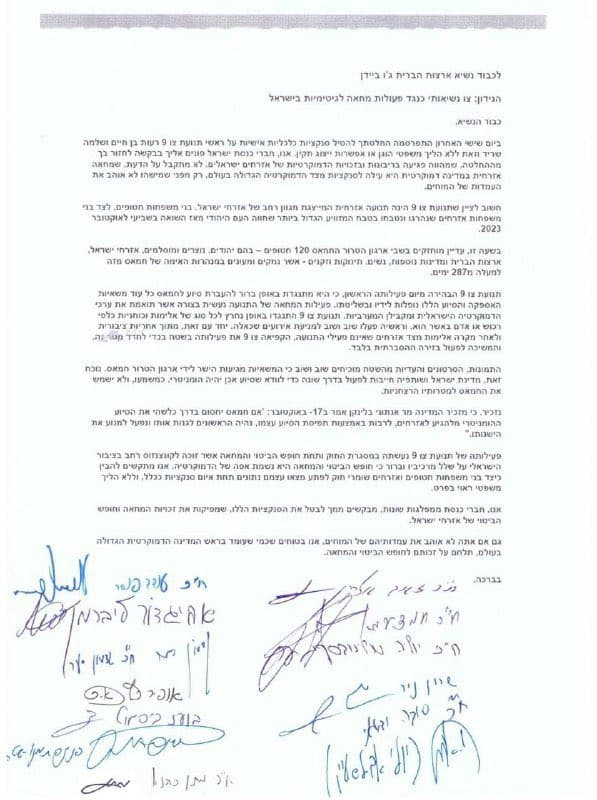 לכבוד נשיא ארצות הברית ג'ו ביידן
הנידון: צו נשיאותי כנגד פעולות מחאה לגיטימיות בישראל
כבוד הנשיא,
ביום שישי האחרון התפרסמה החלטתך להטיל סנקציות כלכליות אישיות על ראשי תנועת צו 9 רעות בן חיים ושלמה
שריד וזאת ללא הליך משפטי הוגן או אפשרות ייצוג תקין. אנו, חברי כנסת ישראל פונים אליך בבקשה לחזור בך
מההחלטה, שמהווה פגיעה בריבונות ובזכויות הדמוקרטיות של אזרחים ישראלים. לא מתקבל על הדעת, שמחאה
אזרחית במדינה דמוקרטית היא עילה לסנקציות מצד הדמוקרטיה הגדולה בעולם, רק מפני שמישהו לא אוהב את
העמדות של המוחים.
חשוב לציין שתנועת צו 9 הינה תנועה אזרחית המייצגת מגוון רחב של אזרחי ישראל, בני משפחות חטופים, לצד בני
משפחות אזרחים שנהרגו ונטבחו בטבח המזוויע הגדול ביותר שחווה העם היהודי מאז השואה בשביעי לאוקטובר
2023.
בשעה זו, עדיין מוחזקים בשבי ארגון הטרור החמאס 120 חטופים – בהם יהודים, נוצרים ומוסלמים, אזרחי ישראל,
ארצות הברית ומדינות נוספות, נשים, תינוקות וזקנים - אשר נמקים ומעונים במנהרות האימה של חמאס מזה
למעלה מ287 ימים.
תנועת צו 9 הבהירה מיום פעילותה הראשון, כי היא מתנגדת באופן ברור להעברת סיוע לחמאס כל עוד משאיות
האספקה והסיוע הללו נופלות לידיו ובשליטתו. המחאה של התנועה נעשית בצורה אשר תואמת את ערכי
הדמוקרטיה הישראלית ומקבילן המערביות. תנועת צו 9 התנגדו באופן נחרץ לכל סוג של אלימות וכוחניות כלפי
רכוש או אדם באשר הוא, וראשיה פעלו שוב ושוב למניעת אירועים שכאלה. יחד עם זאת, מתוך אחריות ציבורית
ולאחר מקרה אלימות מצד אזרחים שאינם פעילי התנועה, הקפיאה צו 9 את פעילותה בשטח בכדי לחדד
והמשיכה לפעול בזירה ההסברתית בלבד.
התמונות, הסרטונים והעדויות מהשטח מוכיחים שוב ושוב כי המשאיות מגיעות הישר לידי ארגון הטרור חמאס. נוכח
זאת, מדינת ישראל ושותפיה חייבות לפעול בדרך שונה כדי לוודא שסיוע אכן יהיה הומניטרי, כמשמעו, ולא ישמש
את החמאס למטרותיו הרצחניות.
נזכיר, כי מזכיר המדינה מר אנתוני בלינקן אמר ב17- באוקטובר: 'אם חמאס יחסום בדרך כלשהי את הסיוע
ההומניטרי מלהגיע לאזרחים, לרבות באמצעות תפיסת הסיוע עצמו, נהיה הראשונים לגנות אותו ונפעל למנוע את
הישנותו."
פעילותה של תנועת צו 9 נעשתה במסגרת החוק ותחת חופש הביטוי והמחאה אשר זוכה לקונצנזוס רחב בציבור
הישראלי על שלל מרכיביו וברור כי חופש הביטוי והמחאה היא נשמת אפה של הדמוקרטיה. אנו מתקשים להבין
כיצד בני משפחות חטופים ואזרחים שומרי חוק לפתע מצאו עצמם נתונים תחת איום סנקציות ככלל, וללא הליך
משפטי ראוי בפרט.
אנו, חברי כנסת ממפלגות שונות, מבקשים ממך לבטל את הסנקציות הללו, שמפיקות את זכויות המחאה וחופש
הביטוי של אזרחי ישראל.
גם אם אתה לא אוהב את עמדותיהם של המוחים, אנו בטוחים שכמי שעומד בראש המדינה הדמוקרטית הגדולה
בעולם, תלחם על זכותם לחופש הביטוי והמחאה.
בברכה,
ח"כ עודד פורר
אביגדור ליברמן
ח"כ
ח"כ
אופיר כץ
שרון ניר
בועז ביסמוט
(יולי אדלשטיין)
ח"כ מתן כהנא